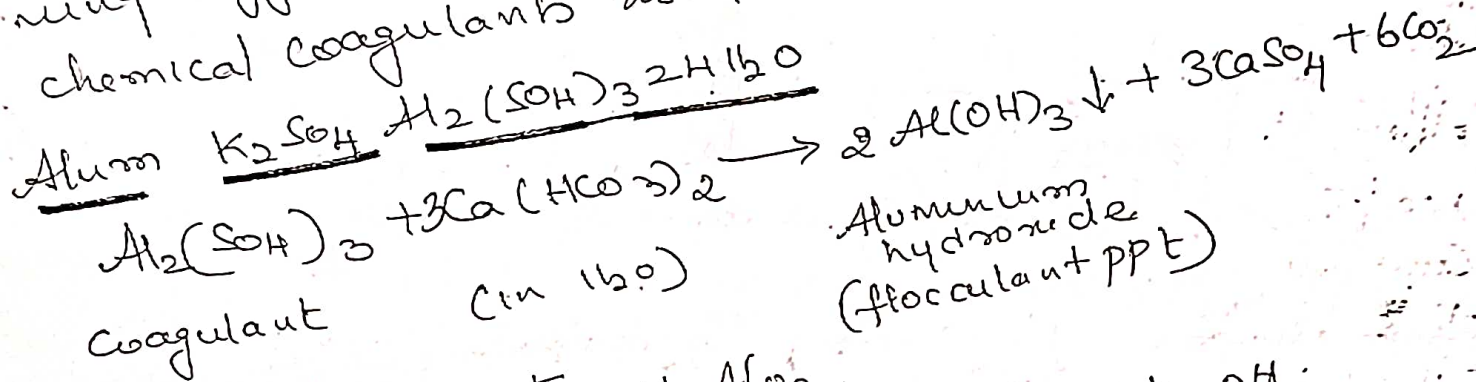 chemical coagulants
Alum K2SO4 Al2(SO4)3 24H2O
Al2(SO4)3 + 3Ca(HCO3)2 → 2Al(OH)3 ↓ + 3CaSO4 + 6CO2
coagulant (in H2O) Aluminium
hydroxide
(flocculant ppt)